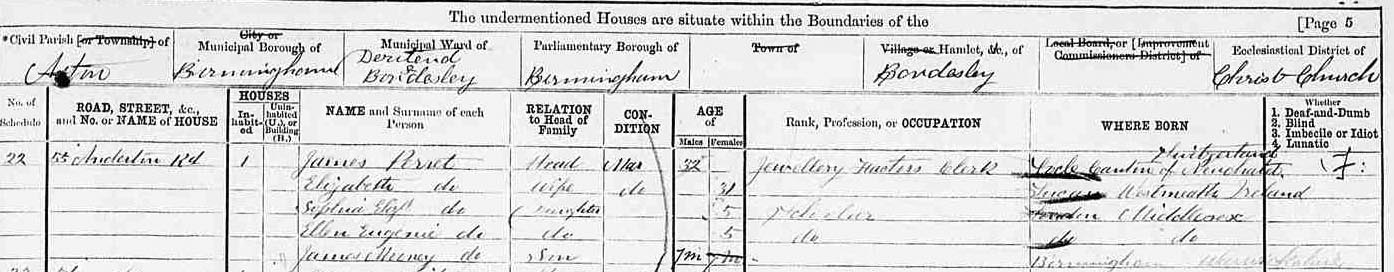 The undermentioned Houses are situate within the Boundaries of the [Page 5
*Civil Parish [or Township] of City or Municipal Borough of Municipal Ward of Parliamentary Borough of Town of Village or Hamlet, &c., of Local Board, or [Improvement Commissioners District] of Ecclesiastical District of
Aston Birmingham Deritend & Bordesley Birmingham Bordesley Christ Church
No. of Schedule ROAD, STREET, &c., and No. or NAME of HOUSE HOUSES In-habit-ed Unin-habited (U.), or Building (B.) NAME and Surname of each Person RELATION to Head of Family CON-DITION AGE of Males Females Rank, Profession, or OCCUPATION WHERE BORN Whether 1. Deaf-and-Dumb 2. Blind 3. Imbecile or Idiot 4. Lunatic
22 55 Anderton Rd 1 James Perret Head Mar 32 Jewellery Factors Clerk Locle Canton of Switzerland
Elizabeth do Wife do 31 Westmeath Ireland
Sophia Elizth do Daughter 5 Scholar London Middlesex
Ellen Eugenie do do 5 do do do
James do Son 7m Birmingham